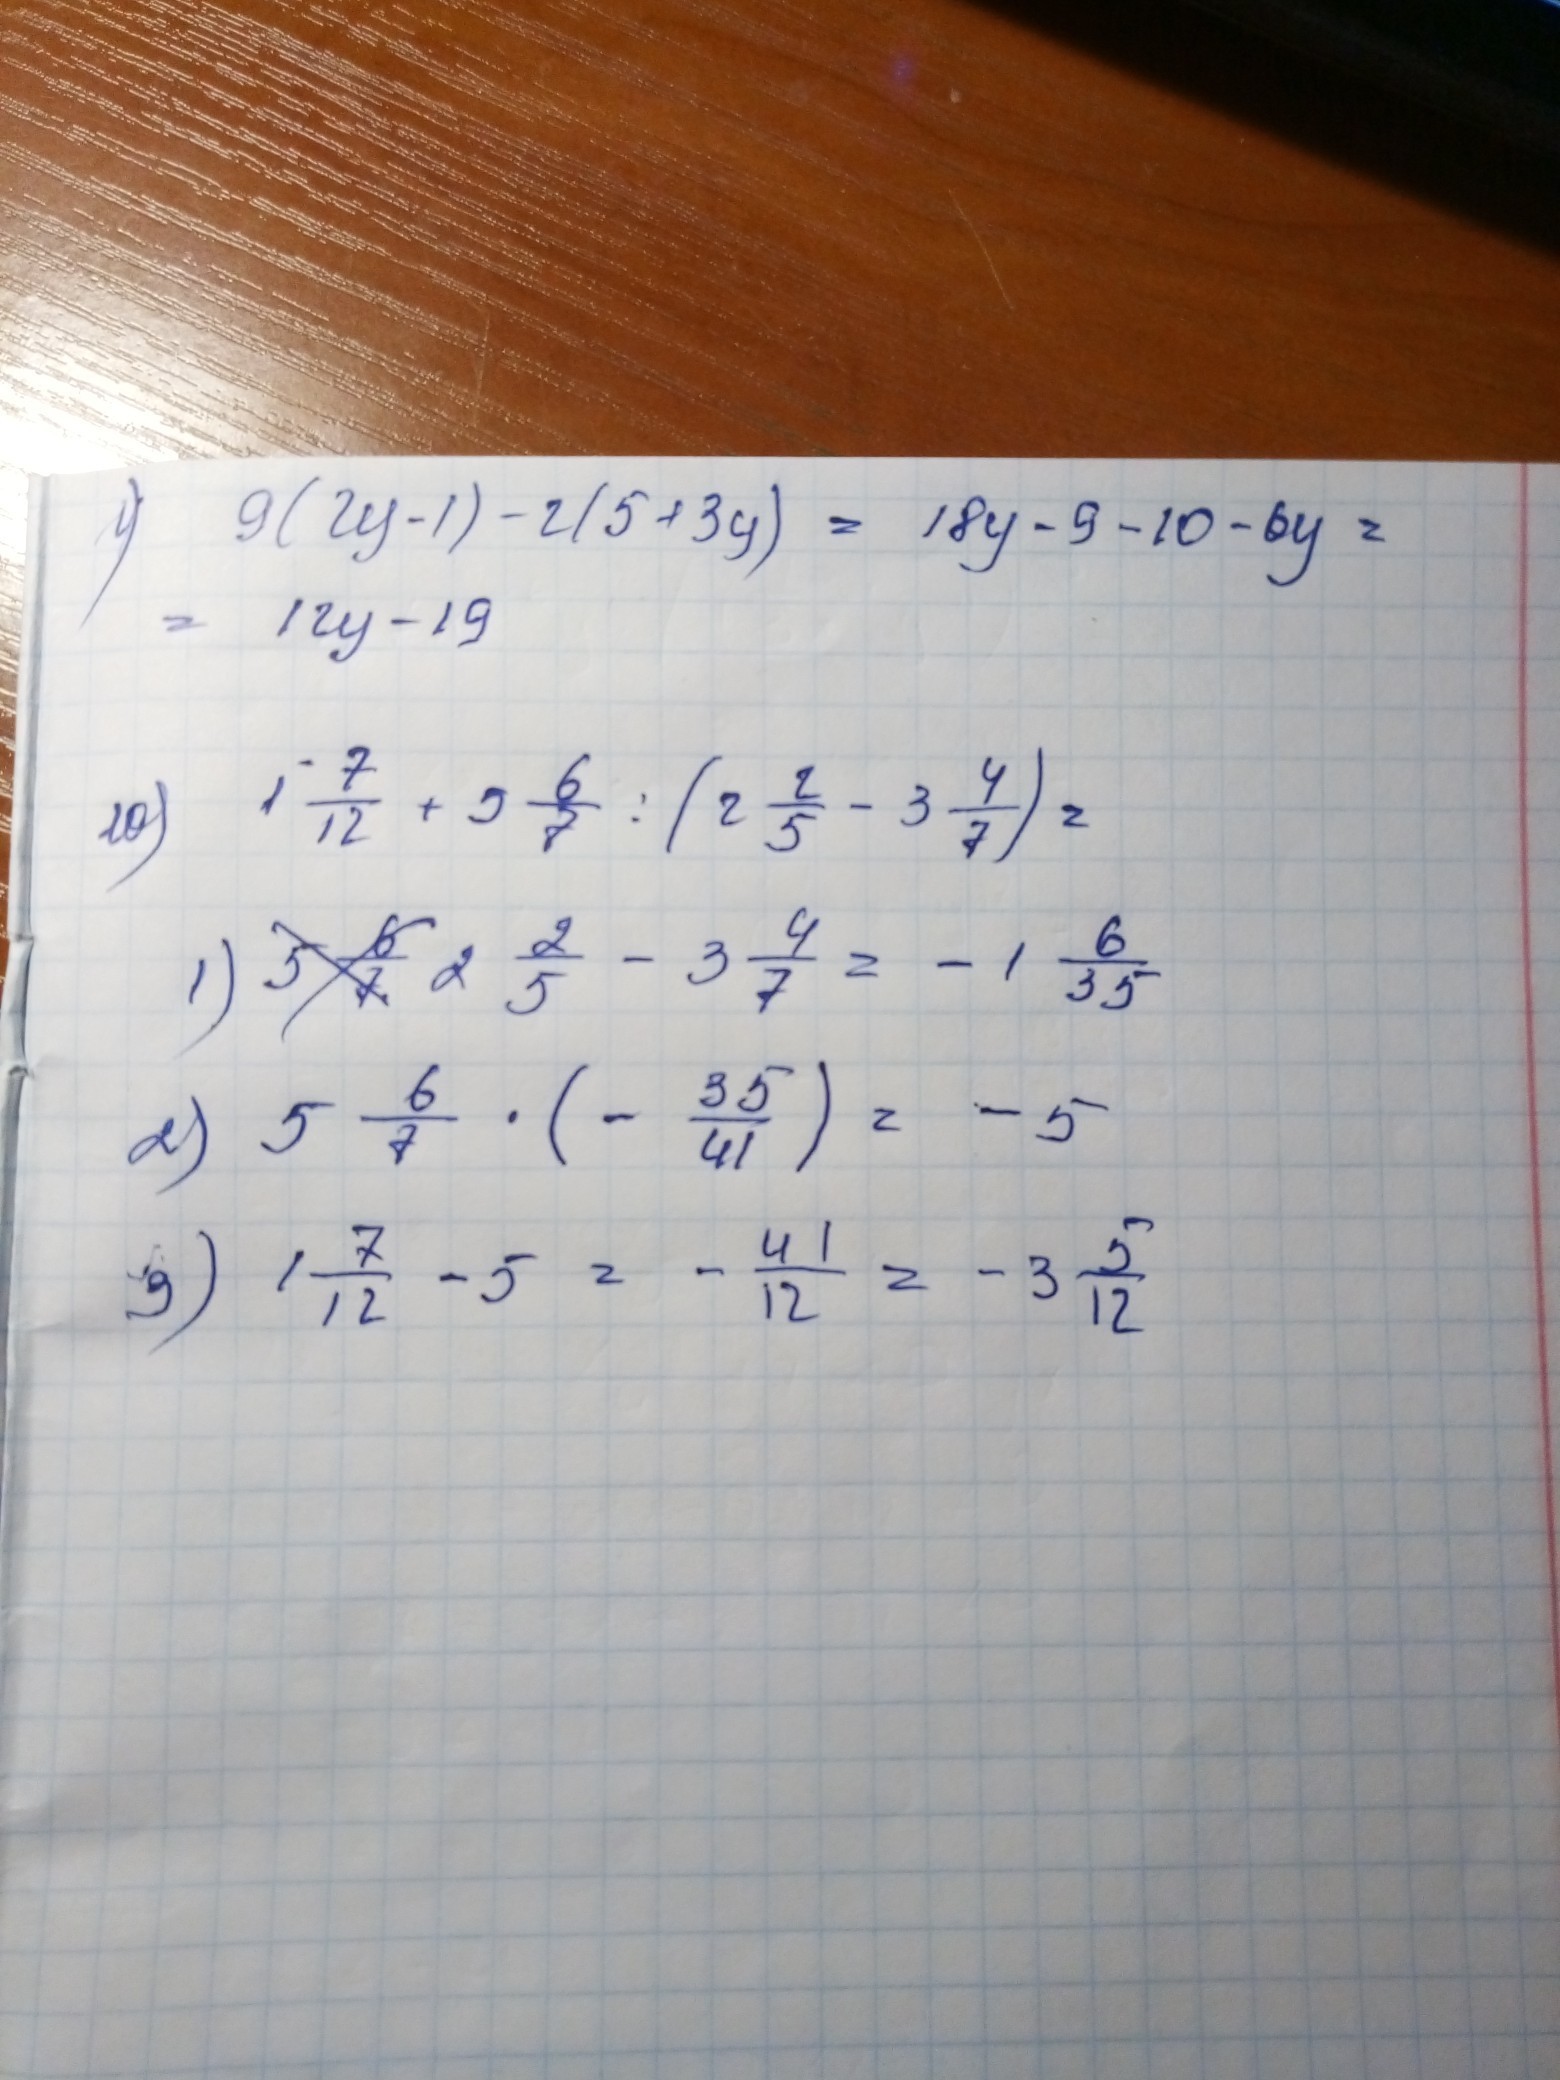 1) 9(2y-1)-2(5+3y) = 18y-9-10-6y =
= 12y-19
10) 1 7/12 + 5 6/7 : (2 2/5 - 3 4/7) =
1) 5 6/7 2 2/5 - 3 4/7 = -1 6/35
2) 5 6/7 · (- 35/41) = -5
3) 1 7/12 - 5 = - 41/12 = -3 5/12